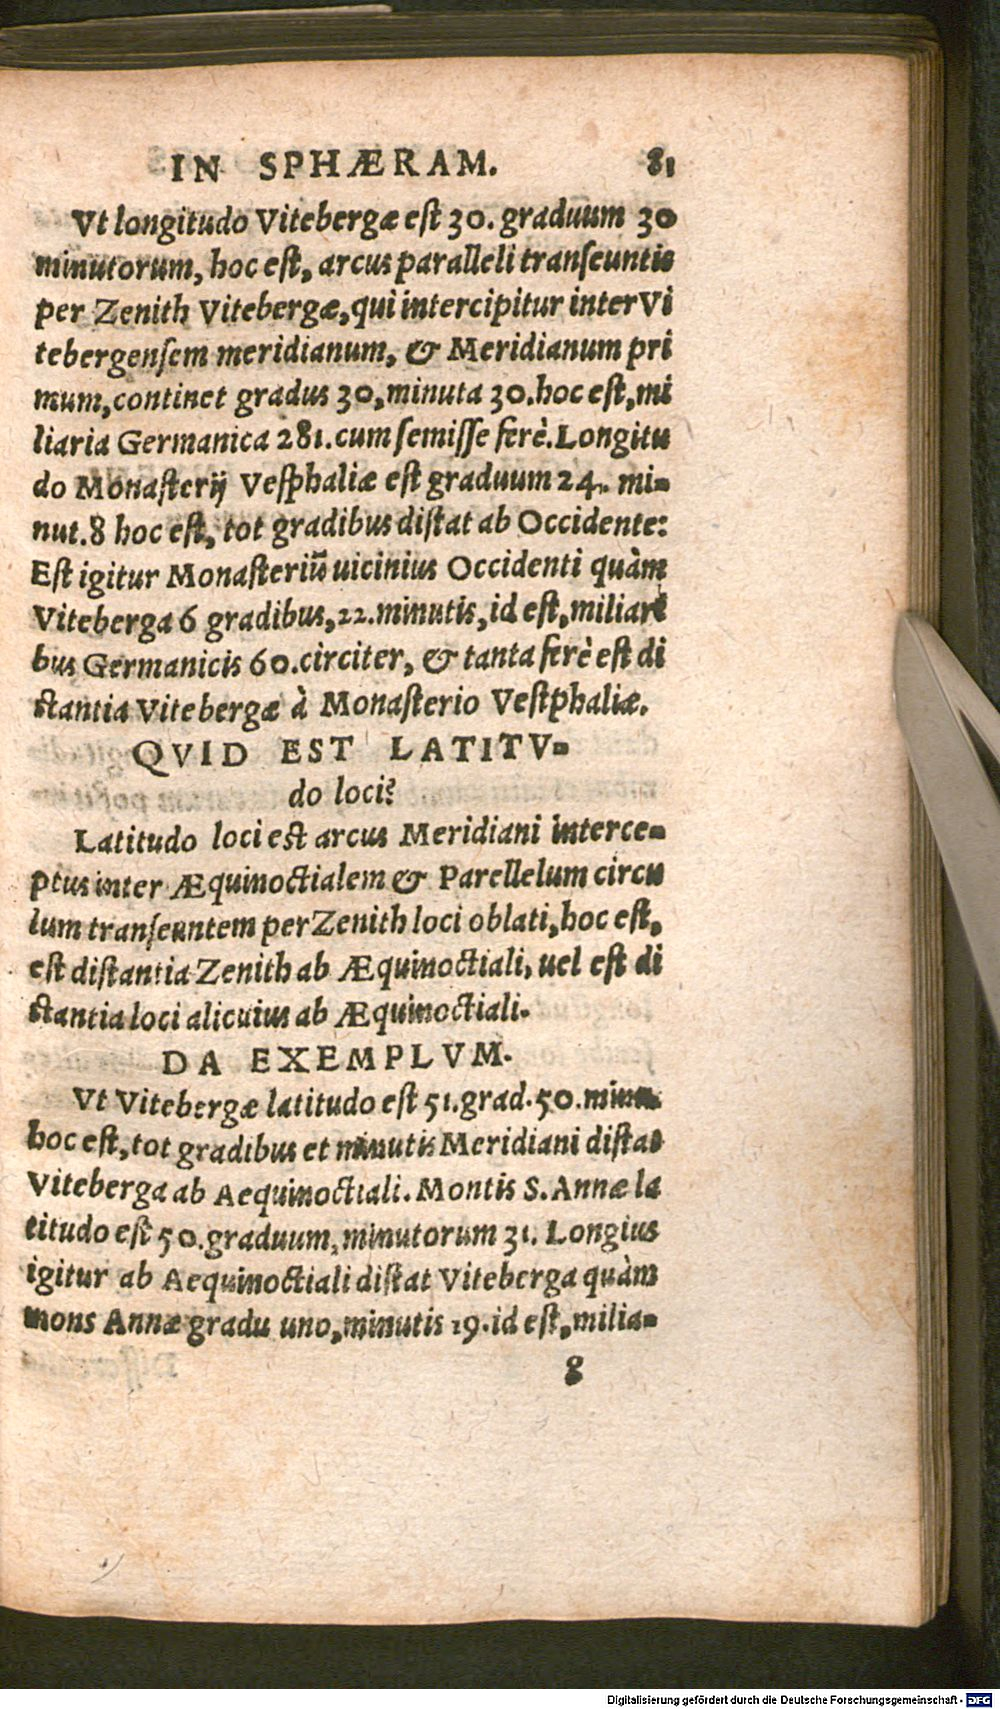 IN SPHÆRAM. 81
Vt longitudo Vitebergæ est 30. graduum 30
minutorum, hoc est, arcus paralleli transeuntis
per Zenith Vitebergæ, qui intercipitur inter Vi
tebergensem meridianum, & Meridianum pri
mum, continet gradus 30, minuta 30. hoc est, mi
liaria Germanica 281. cum semisse ferè. Longitu
do Monasterij Vesphaliæ est graduum 24. mi-
nut. 8 hoc est, tot gradibus distat ab Occidente:
Est igitur Monasteriū uicinius Occidenti quàm
Viteberga 6 gradibus, 22. minutis, id est, miliari
bus Germanicis 60. circiter, & tanta ferè est di
stantia Vitebergæ à Monasterio Vestphaliæ.
QVID EST LATITV-
do loci?
Latitudo loci est arcus Meridiani interce-
ptus inter Æquinoctialem & Parellelum circu
lum transeuntem per Zenith loci oblati, hoc est,
est distantia Zenith ab Æquinoctiali, uel est di
stantia loci alicuius ab Æquinoctiali.
DA EXEMPLVM.
Vt Vitebergæ latitudo est 51. grad. 50. minu.
hoc est, tot gradibus et minutis Meridiani distat
Viteberga ab Aequinoctiali. Montis S. Annæ la
titudo est 50. graduum, minutorum 31. Longius
igitur ab Aequinoctiali distat Viteberga quàm
mons Annæ gradu uno, minutis 19. id est, milia-
g
Digitalisierung gefördert durch die Deutsche Forschungsgemeinschaft - DFG